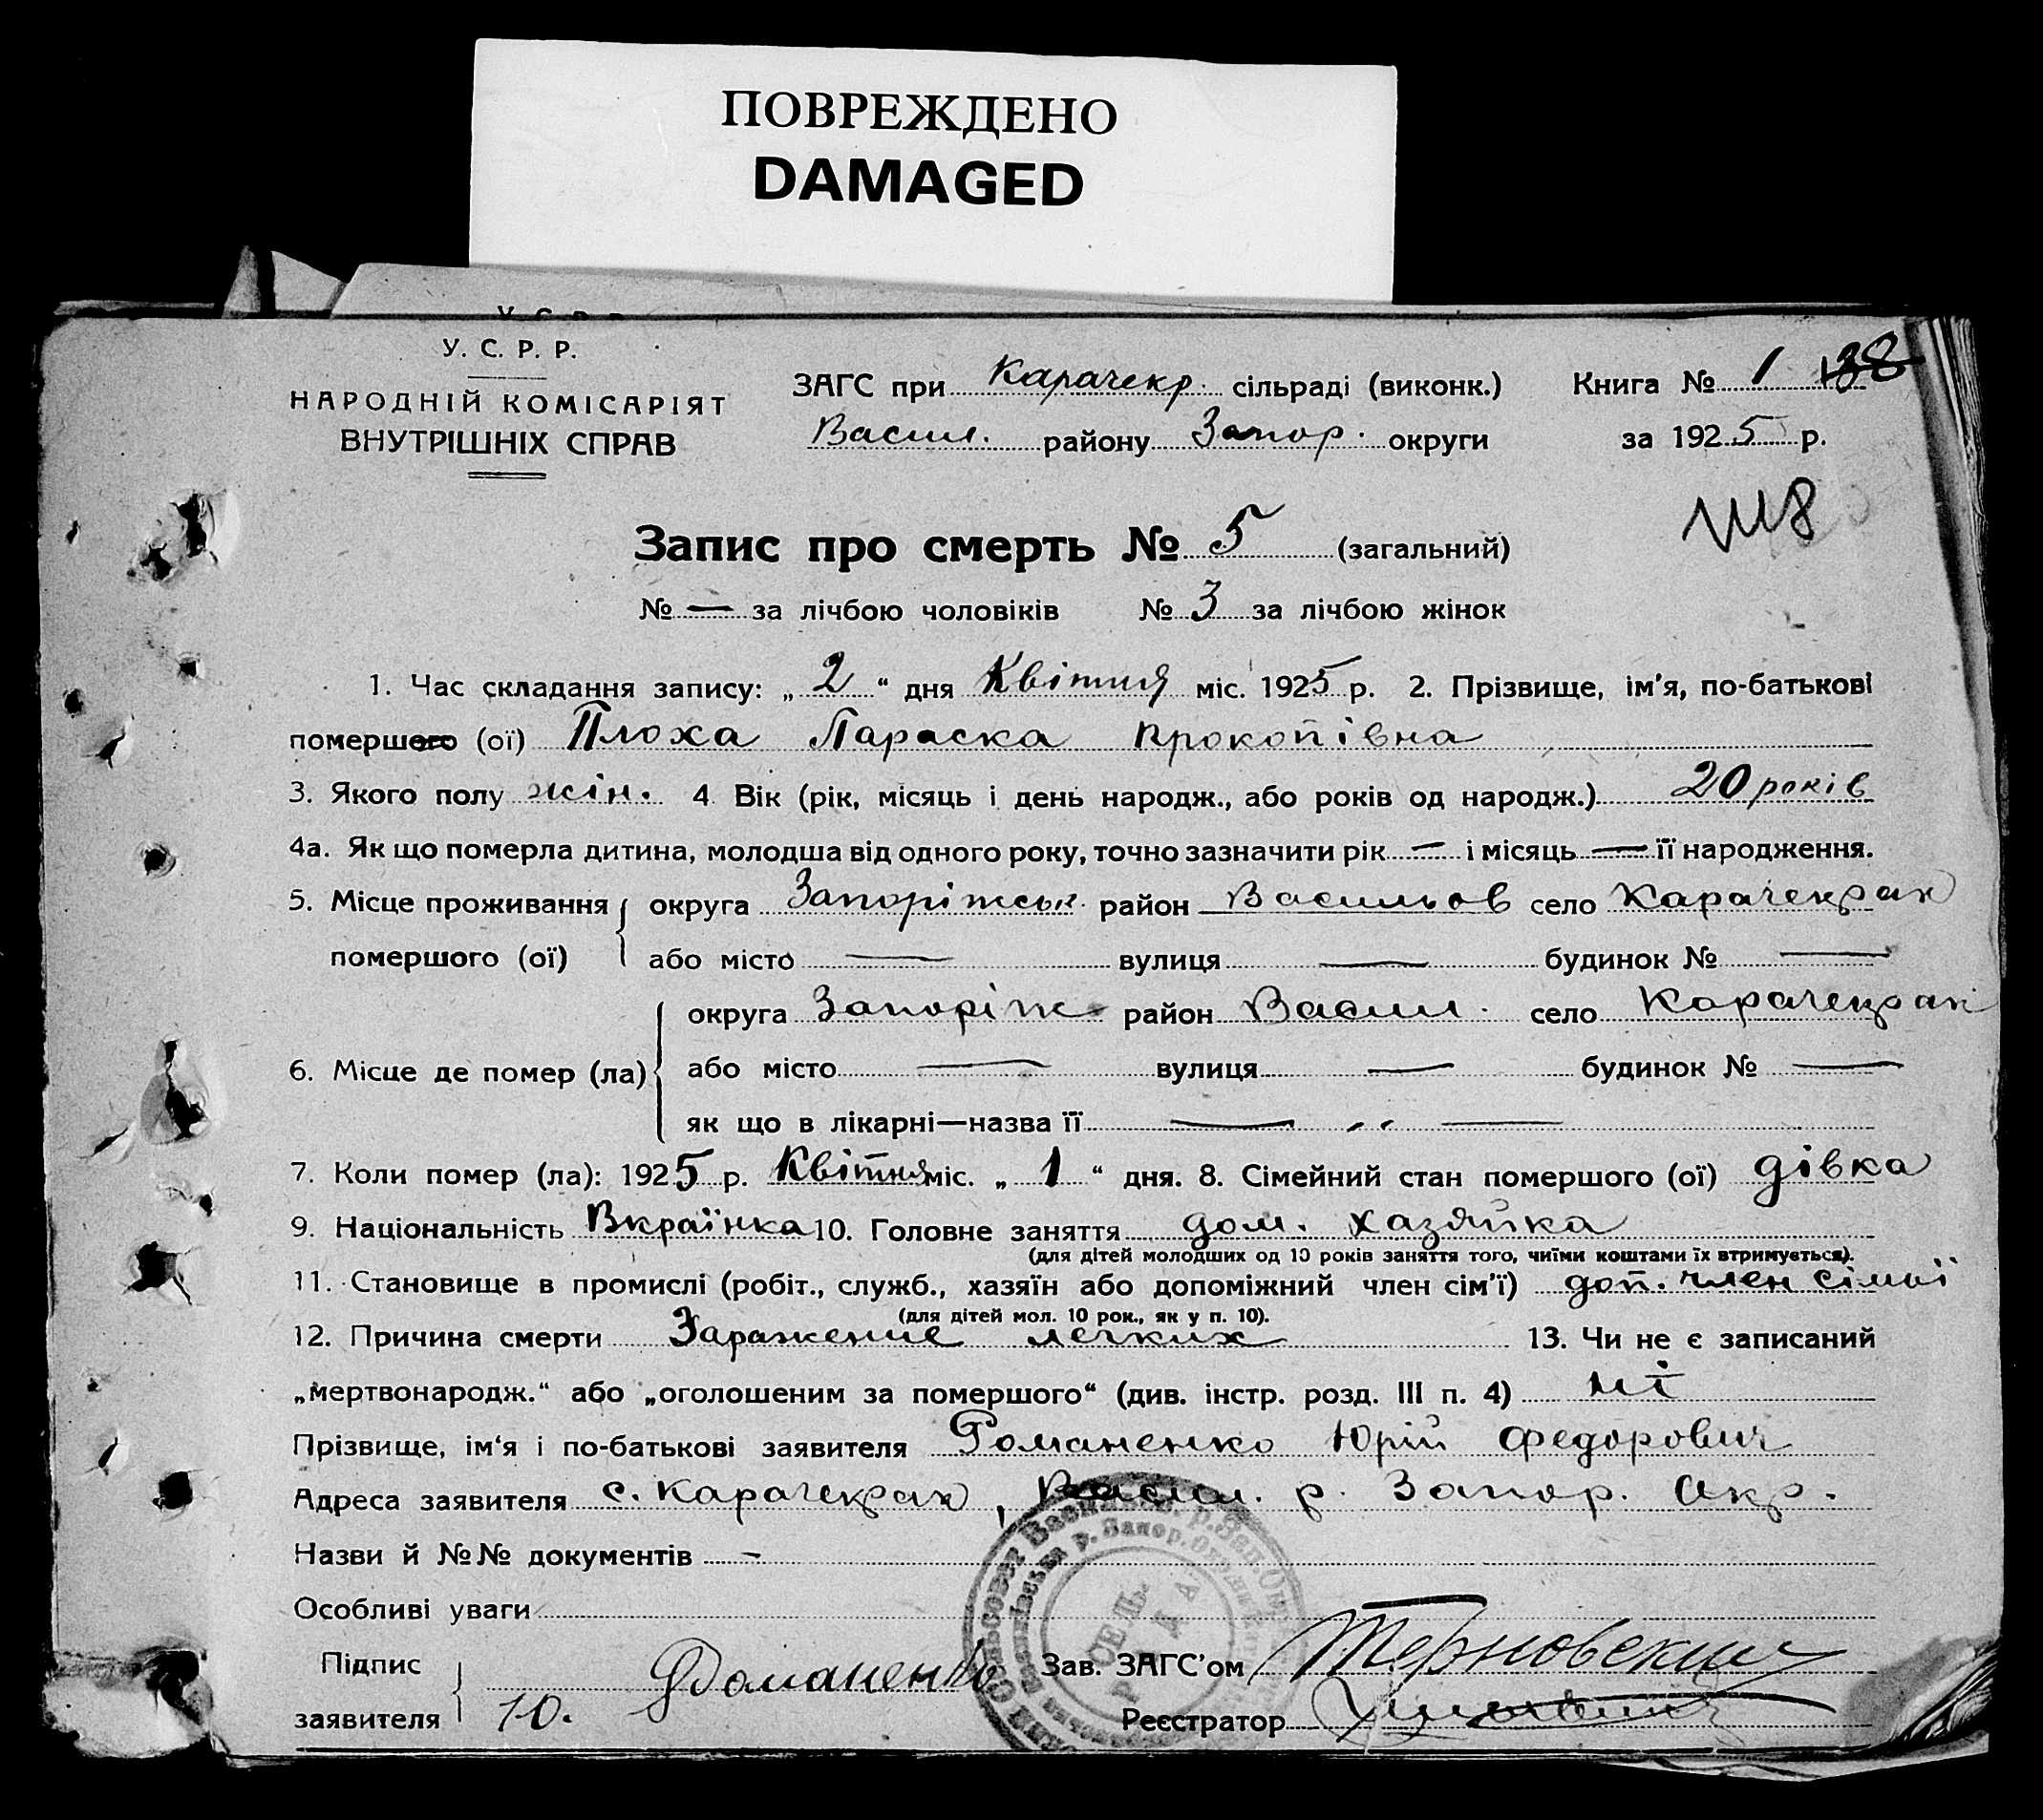 ПОВРЕЖДЕНО
DAMAGED
У. С. Р. Р.
У. С. Р. Р.
НАРОДНІЙ КОМІСАРІЯТ
ВНУТРІШНІХ СПРАВ
ЗАГС при Карачекр. сільраді (виконк.) Книга № 1 138
Васил. району Запор. округи за 1925 р.
Запис про смерть № 5 (загальний)
№ — за лічбою чоловіків № 3 за лічбою жінок
1. Час складання запису: „2“ дня Квітня міс. 1925 р. 2. Прізвище, ім'я, по-батькові
помершого (ої) Плоха Параска Прокопівна
3. Якого полу жін. 4 Вік (рік, місяць і день народж., або років од народж.) 20 років
4а. Як що померла дитина, молодша від одного року, точно зазначити рік — і місяць — її народження.
5. Місце проживання округа Запоріжськ. район Васильов село Карачекрак
помершого (ої) або місто — вулиця — будинок № —
округа Запоріж район Васил. село Карачекрак
6. Місце де помер (ла) або місто — вулиця — будинок № —
як що в лікарні—назва її — „ —
7. Коли помер (ла): 1925 р. Квітня міс. „1“ дня. 8. Сімейний стан помершого (ої) дівка
9. Національність Вкраїнка 10. Головне заняття дом. хазяйка
(для дітей молодших од 10 років заняття того, чиїми коштами їх втримується).
11. Становище в промислі (робіт., служб., хазяїн або допоміжний член сім'ї) доп. член сімьї
(для дітей мол. 10 рок., як у п. 10).
12. Причина смерти Заражение легких 13. Чи не є записаний
„мертвонародж.“ або „оголошеним за помершого“ (див. інстр. розд. III п. 4) ні
Прізвище, ім'я і по-батькові заявителя Романенко Юрій Федорович
Адреса заявителя с. Карачекрак, Васил. р. Запор. Окр.
Назви й №№ документів —
Особливі уваги
СЕЛЬ.
РАДА
Підпис Романенко Зав. ЗАГС'ом Терновский
заявителя Ю. Реєстратор